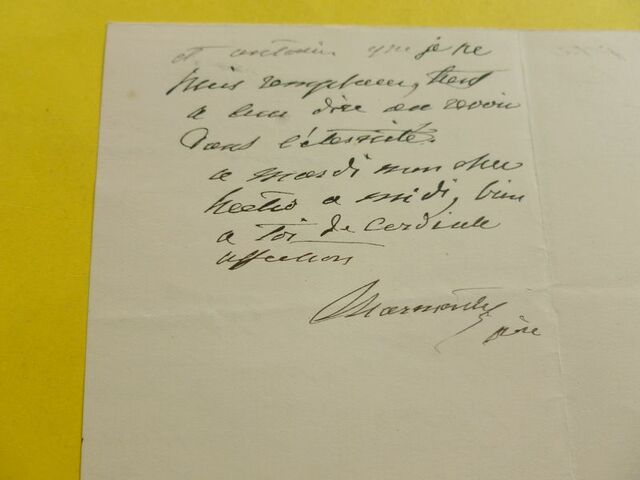 et antonin que je ne
puis remplacer, tient
a leur dire au revoir
Dans l'éternité.
a mardi mon cher
hector a midi, bien
a toi de Cordiale
affection
Marmontel
père